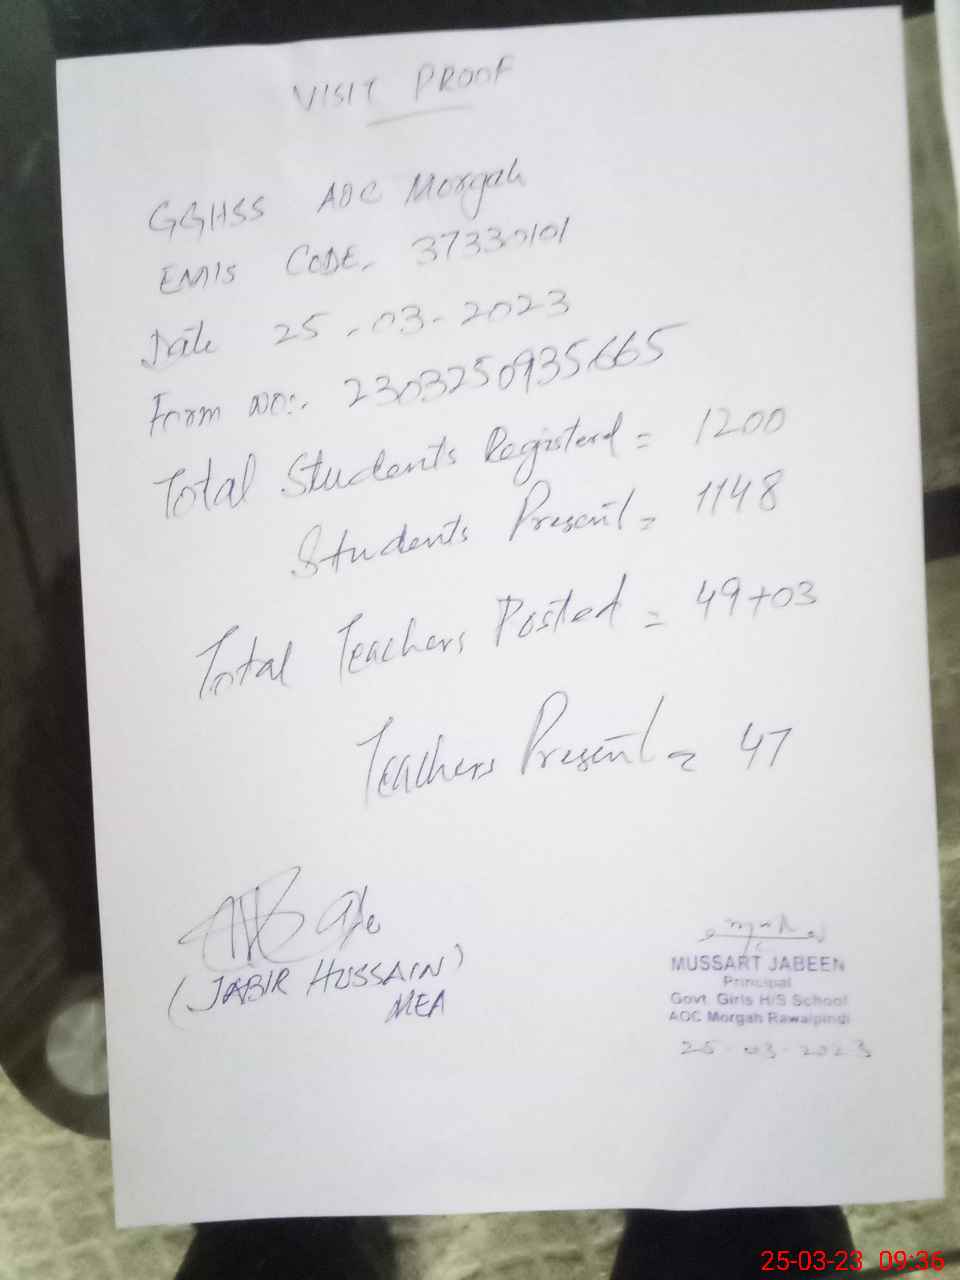 VISIT PROOF
GGHSS AOC Morgah
EMIS CODE. 37330101
Date 25-03-2023
Form NO:. 2303250935665
Total Students Registerd = 1200
Students Present = 1148
Total Teachers Posted = 49+03
Teachers Present = 47
(JABIR HUSSAIN)
MEA
MUSSART JABEEN
Principal
Govt. Girls H/S School
AOC Morgah Rawalpindi
25-03-2023
25-03-23 09:36